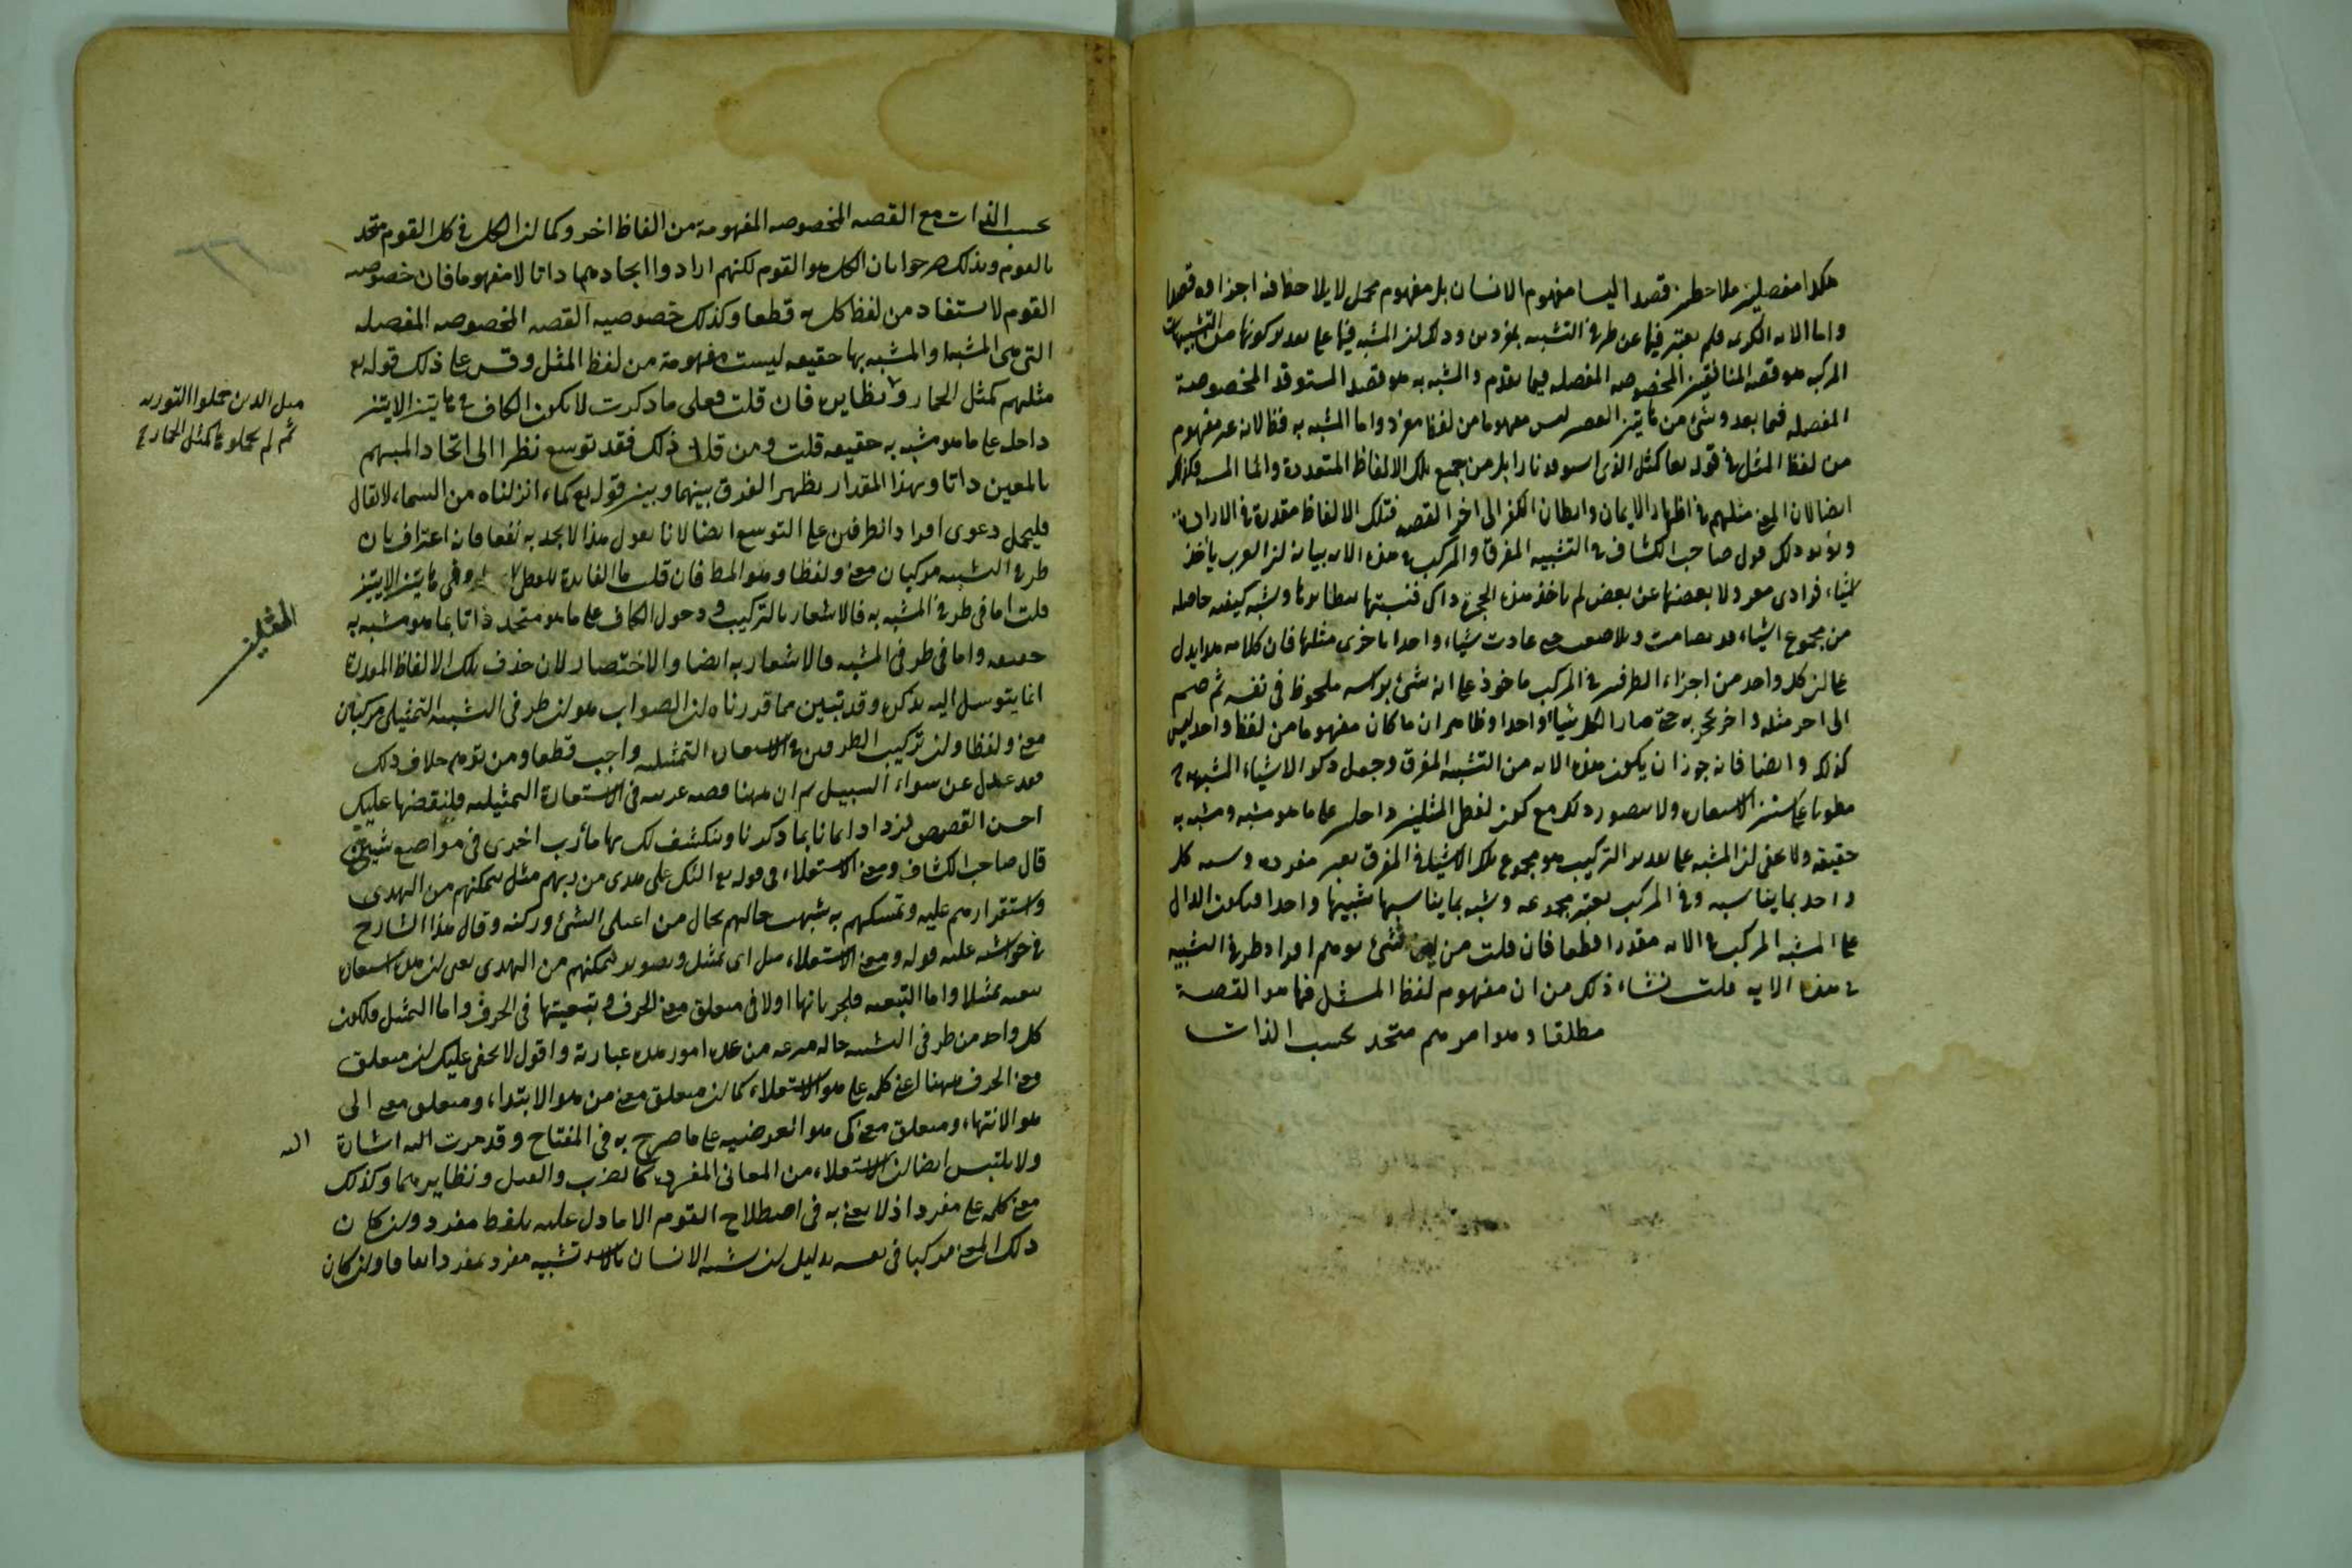 هكذا مفصلين ملاحظين قصدا ليسا مفهوم الانسان بل مفهوم مجمل لا يلاحظ فيه اجزاؤه قصدا
واما الايه الكريمه فلم يعتبر فيها عن طرفي التشبيه بمفردين وذلك لان المشبه فيها على تقدير كونها من التشبيهات
المركبه هو قصه المنافقين المخصوصه المفصله فيما تقدم والمشبه به هو قصه المستوقد المخصوصة
المفصله فيما بعد وشئ من هاتين القصتين ليس مفهوما من لفظ مفرد واما المشبه به فظ لانه غير مفهوم
من لفظ المثل في قوله تعا كمثل الذى استوقد نارا بل من جميع تلك الالفاظ المتعددة واما المشبه فكذلك
ايضا لان المعنى مثلهم في اظهار الايمان وابطان الكفر الى اخر القصه فتلك الالفاظ مقدرة في الارادة
ويؤيد ذلك قول صاحب الكشاف في التشبيه المفرق والمركب في هذه الايه بيانه ان العرب يأخذ
اشياء فرادى معزولا بعضها عن بعض لم يأخذ هذا بحجزة ذاك فتشبهها بنظائرها وتشبه كيفيه حاصله
من مجموع اشياء قد تضامت وتلاصقت حتى عادت شيئا واحدا باخرى مثلها فان كلامه هذا يدل
على ان كل واحد من اجزاء الطرفين في المركب مأخوذ على انه شئ برأسه ملحوظ في نفسه ثم ضم
الى اخر مثله واخر بحجزه حتى صار الكل شيئا واحدا وظاهر ان ما كان مفهوما من لفظ واحد ليس
كذلك وايضا فانه جوز ان يكون هذه الايه من التشبيه المفرق وجعل ذكر الاشياء المشبهه
مطويا على سنن الاستعارة ولا يتصور ذلك مع كون لفظ المثلين داخلين على ما هو مشبه ومشبه به
حقيقه ولا يخفى ان المشبه على تقدير التركيب هو مجموع تلك الاشياء ففي المفرق يعتبر مفرده ويشبه كل
واحد بما يناسبه وفي المركب يعتبر مجموعه ويشبه بما يناسبها تشبيها واحدا فيكون الدال
على المشبه المركب في الايه مقدرا قطعا فان قلت من اين نشئ توهم افراد طرفي التشبيه
في هذه الايه قلت نشاء ذلك من ان مفهوم لفظ المثل فيها هو القصة
مطلقا وهو امر مبهم متحد بحسب الذات
بحسب الذات مع القصه المخصوصه المفهومة من الفاظ اخر وكما ان الكل في كل القوم متحد
بالقوم ولذلك صرحوا بان الكل هو القوم لكنهم ارادوا اتحادهما ذاتا لا مفهوما فان خصوصيه
القوم لا تستفاد من لفظ كل قطعا وكذلك خصوصيه القصه المخصوصه المفصله
التى هى المشبه او المشبه بها حقيقه ليست مفهومة من لفظ المثل وقس على ذلك قوله تع
مثلهم كمثل الحمار ونظايره فان قلت فعلى ما ذكرت لا يكون الكاف في هاتين الايتين
داخله على ما هو مشبه به حقيقه قلت ومن قال ذلك فقد توسع نظرا الى اتحاد المبهم
بالمعين ذاتا وبهذا المقدار يظهر الفرق بينهما وبين قوله تع كماء انزلناه من السماء لا يقال
فليحمل دعوى افراد الطرفين على التوسع ايضا لانا نقول هذا لا يجديه نفعا فانه اعتراف بان
طرفي التشبيه مركبان معنى ولفظا وهو المط فان قلت ما الفايدة للفظ في هاتين الايتين
قلت اما في طرف المشبه به فالاشعار بالتركيب ودخول الكاف على ما هو متحد ذاتا بما هو مشبه به
حقيقه واما في طرف المشبه فالاشعار به ايضا والاختصار لان حذف تلك الالفاظ المقدرة
انما يتوسل اليه بذكره وقد تبين مما قدرناه ان الصواب هو ان طرفى التشبيه التمثيلى مركبان
معنى ولفظا وان تركيب الطرفين في الاستعارة التمثيليه واجب قطعا ومن توهم خلاف ذلك
فقد عدل عن سواء السبيل ثم ان ههنا قصه غريبه في الاستعارة التمثيليه فلنقصها عليك
احسن القصص لتزداد ايمانا بما ذكرنا وينكشف لك بها مأرب اخرى في مواضع شتى
قال صاحب الكشاف ومعنى الاستعلاء في قوله تع اولئك على هدى من ربهم مثل لتمكنهم من الهدى
واستقرارهم عليه وتمسكهم به شبهت حالهم بحال من اعتلى الشئ وركبه وقال هذا الشارح
في حواشيه عليه قوله ومعنى الاستعلاء مثل اى تمثيل وتصوير لتمكنهم من الهدى يعنى ان هذه استعارة
تبعيه تمثيلا واما التبعيه فلجريانها اولا في متعلق معنى الحرف وتبعيتها في الحرف واما التمثيل فلكون
كل واحد من طرفى التشبيه حاله منتزعه من عدة امور هذه عبارته واقول لا يخفى عليك ان متعلق
معنى الحرف ههنا اعنى كلمه على هو الاستعلاء كما ان متعلق معنى من هو الابتداء ومتعلق معنى الى
هو الانتهاء ومتعلق معنى كى هو الغرضيه على ما صرح به في المفتاح وقد مرت اليه اشارة
ولا يلتبس ايضا ان الاستعلاء من المعانى المفردة كالضرب والقتل ونظايرهما وكذلك
معنى كلمه على مفرد اذ لا يعنى به في اصطلاح القوم الا ما دل عليه بلفظ مفرد وان كان
ذلك المعنى مركبا في نفسه بدليل ان تشبيه الانسان بالاسد تشبيه مفرد بمفرد اتفاقا وان كان
مثل الذين حملوا التورية
ثم لم يحملوها كمثل الحمار
المثلين
اليه